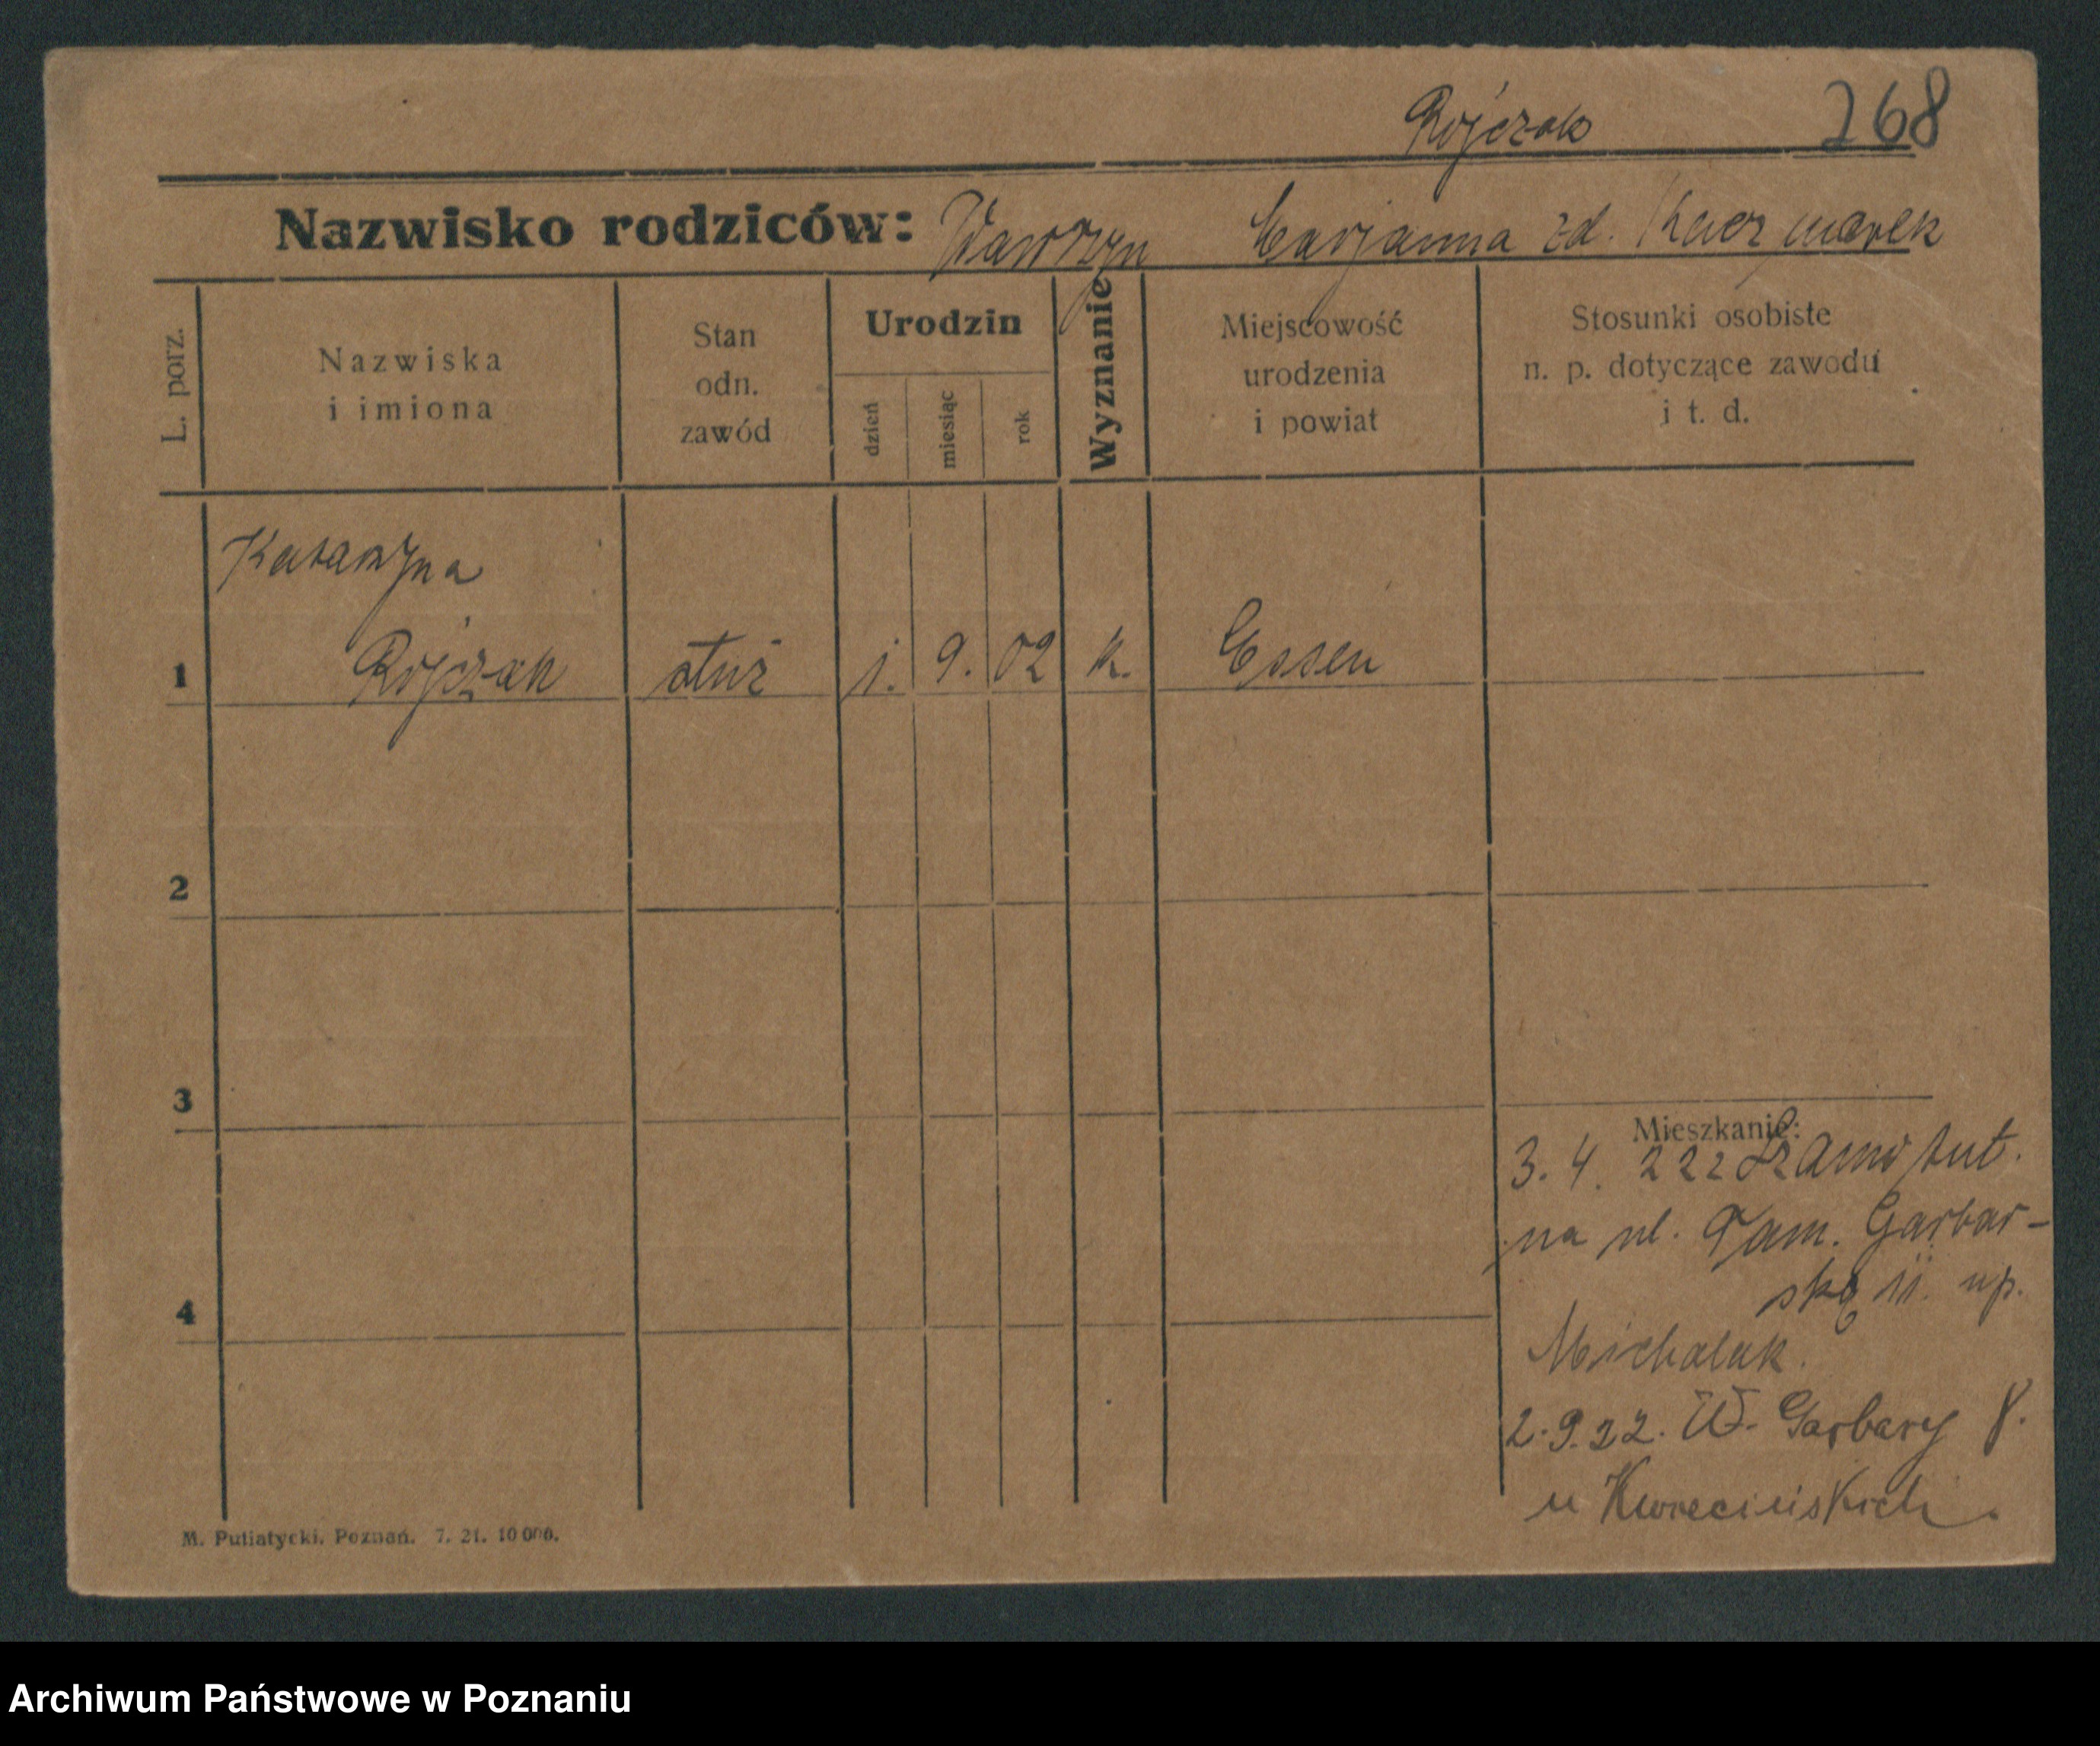 Rójczak 268
Nazwisko rodziców: Wawrzyn Marjanna zd. Kaczmarek
L. porz.
Nazwiska
i imiona
Stan
odn.
zawód
Urodzin
dzień
miesiąc
rok
Wyznanie
Miejscowość
urodzenia
i powiat
Stosunki osobiste
n. p. dotyczące zawodu
i t. d.
Katarzyna
1 Rójczak służ 1. 9. 02 k. Essen
2
3
Mieszkanie:
3. 4. 222 Szamotuł.
na ul. Tam. Garbar-
ską 11. up.
4
Michalak.
2. 9. 22. W. Garbary 8.
u Kwiecińskich.
M. Putiatycki, Poznań. 7. 21. 10 000.
Archiwum Państwowe w Poznaniu